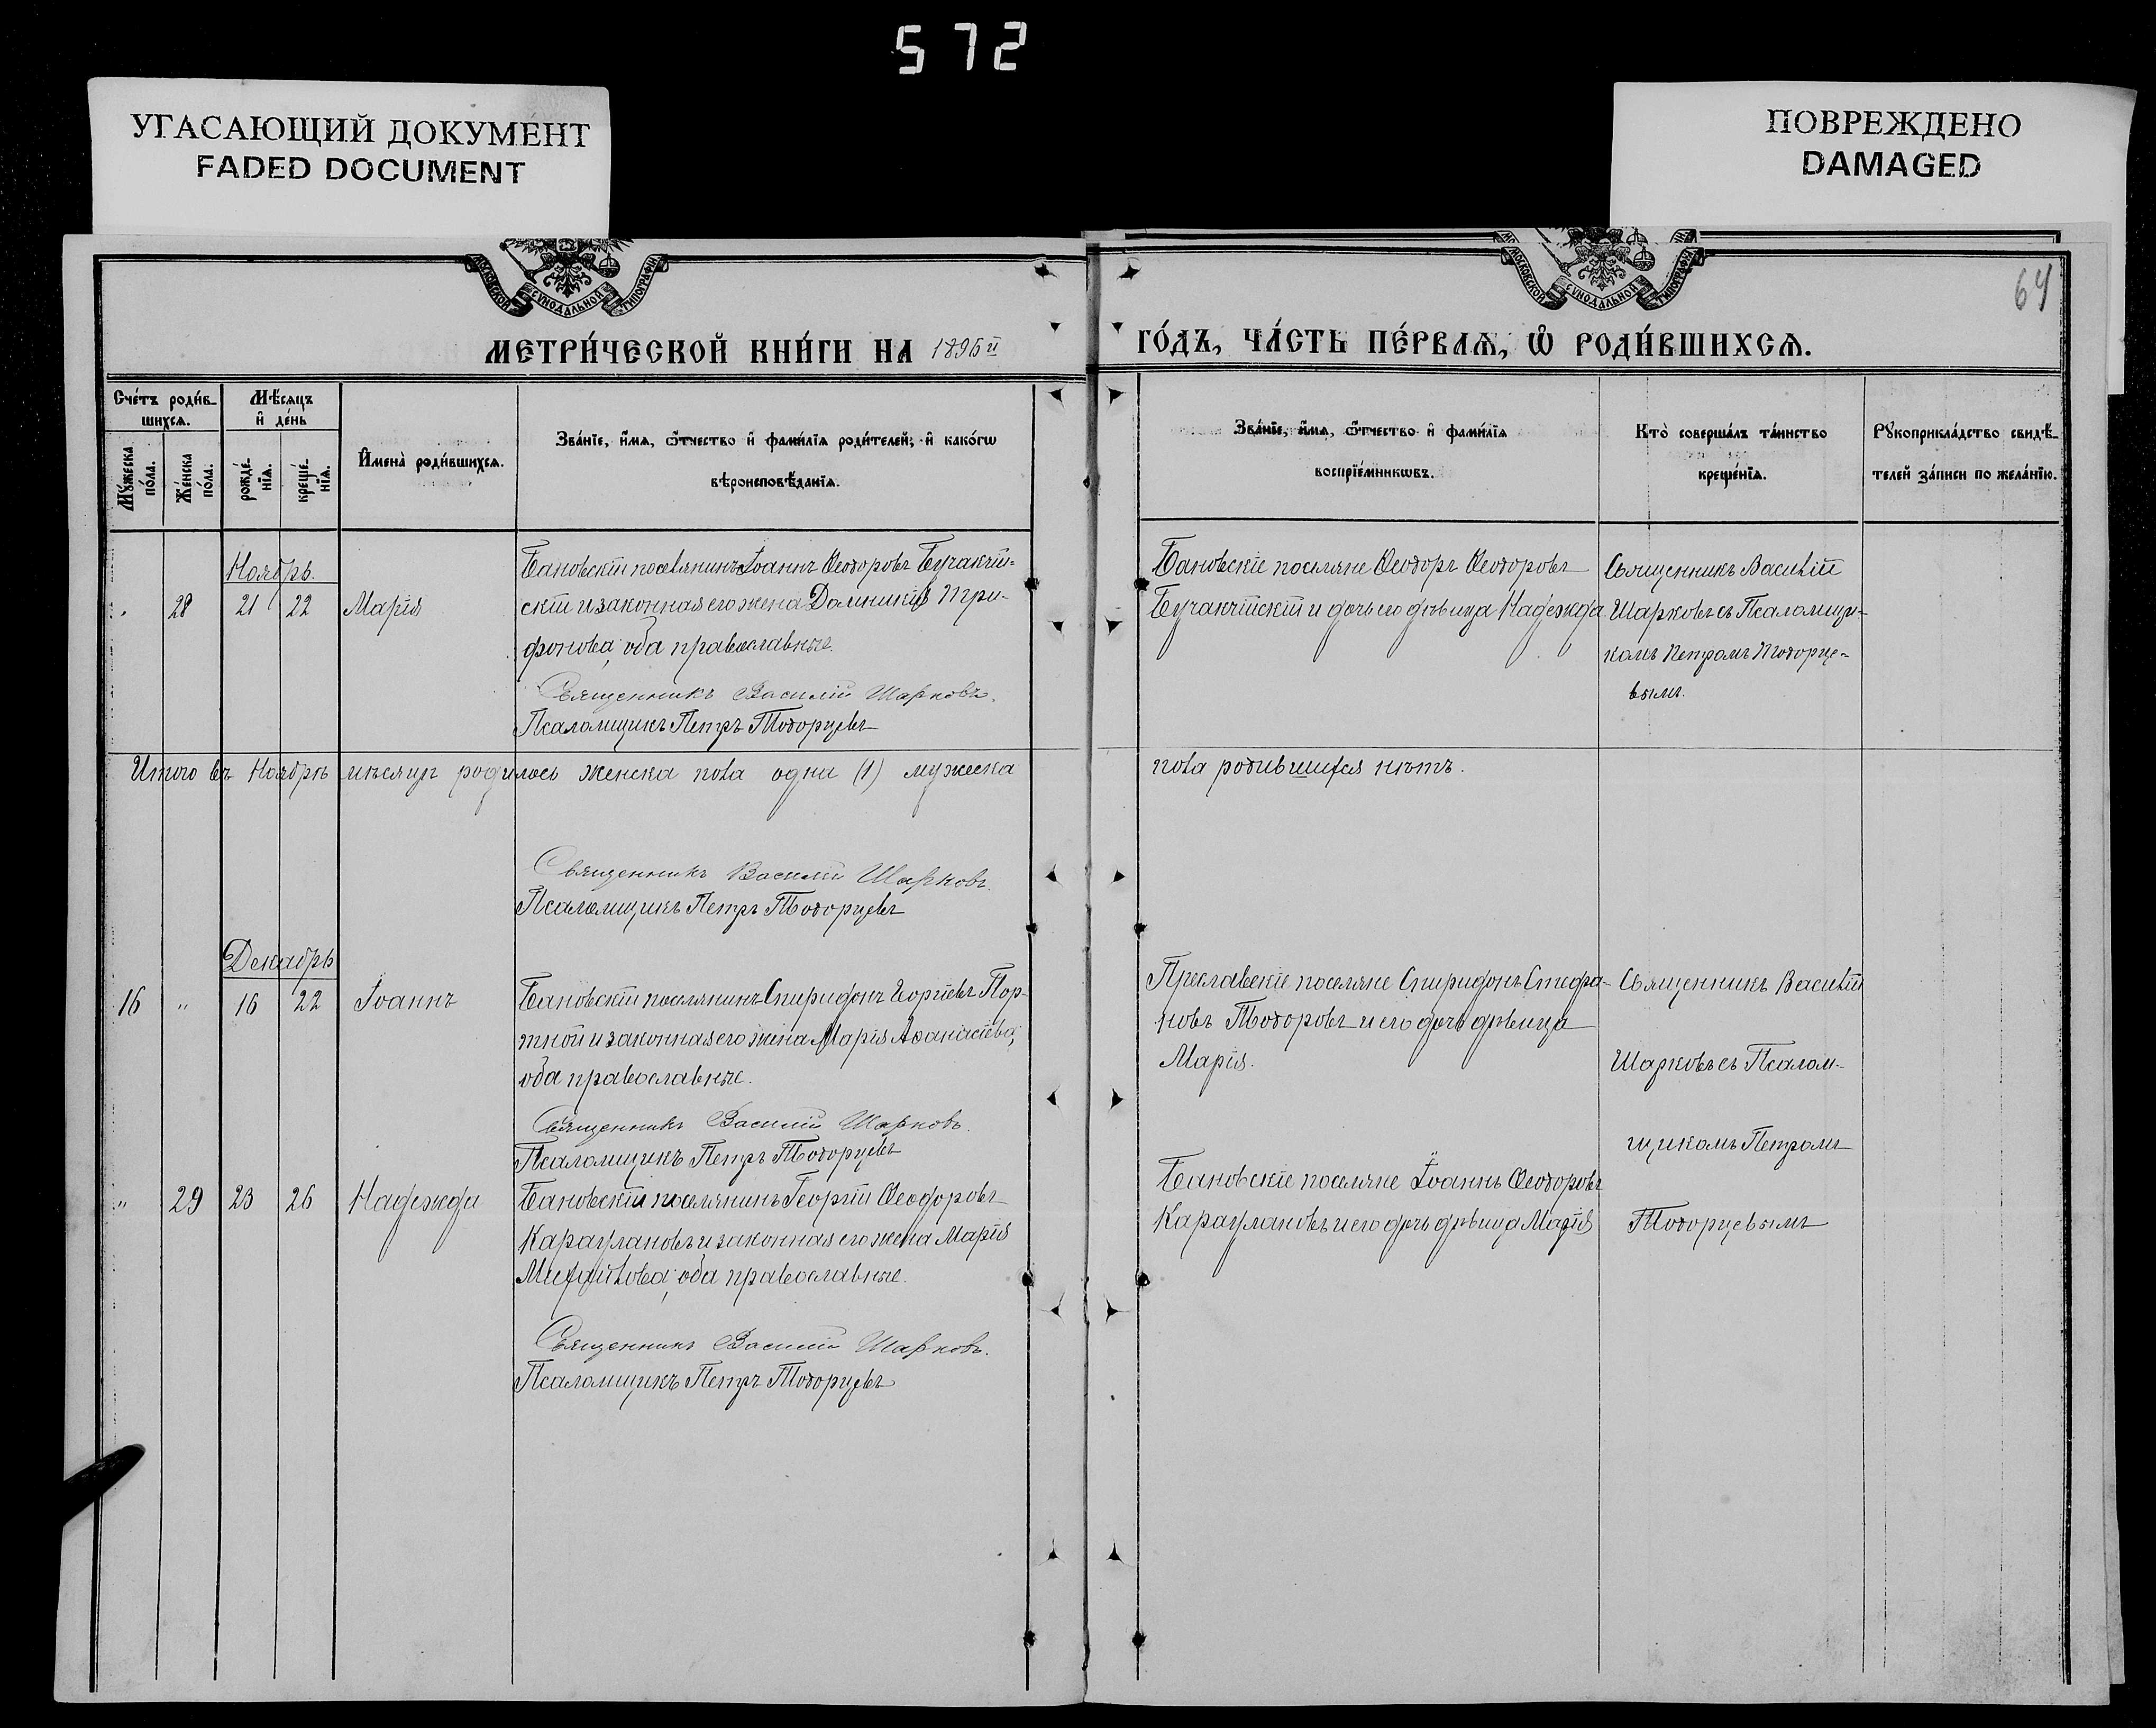 572
УГАСАЮЩИЙ ДОКУМЕНТ
FADED DOCUMENT
ПОВРЕЖДЕНО
DAMAGED
МОСКОВСКОЙ СѴНОДАЛЬНОЙ ТИПОГРАФІИ
МОСКОВСКОЙ СѴНОДАЛЬНОЙ ТИПОГРАФІИ
64
МЕТРИ́ЧЕСКОЙ КНИ́ГИ НА 1895й
ГО́ДЪ, ЧА́СТЬ ПЕ́РВАѦ, Ѽ РОДИ́ВШИХСѦ.
Сче́тъ роди́в-
шихсѧ.
Мꙋжеска по́ла.
Же́нска по́ла.
Мѣ́сѧцъ
и҆ де́нь
рожде́-
нїѧ.
креще́-
нїѧ.
И҆мена̀ роди́вшихсѧ.
Зва́нїе, и҆́мѧ, ѻ҆́тчество и҆ фами́лїѧ роди́телей, и҆ како́гѡ
вѣроисповѣ́данїѧ.
Зва́нїе, и҆́мѧ, ѻ҆́тчество и҆ фами́лїѧ
воспрїе́мникѡвъ.
Кто̀ соверша́лъ та́инство
креще́нїѧ.
Рꙋкоприкла́дство свидѣ́-
телей за́писи по жела́нїю.
Ноябрь.
" 28 21 22 Марія
Бановскій поселянинъ Іоаннъ Ѳеодоровъ Бучакчій-
скій и законная его жена Домникія Три-
фонова, оба православные.
Священникъ Василій Шарковъ.
Псаломщикъ Петръ Тодорцевъ
Бановскіе поселяне Ѳеодоръ Ѳеодоровъ
Бучакчійскій и дочь его дѣвица Надежда
Священникъ Василій
Шарковъ съ Псаломщи-
комъ Петромъ Тодорце-
вымъ.
Итого въ Ноябрѣ мѣсяцѣ родилось женска пола одна (1) мужеска
пола родившихся нѣтъ.
Священникъ Василій Шарковъ.
Псаломщикъ Петръ Тодорцевъ
Декабрь
16 " 16 22 Іоаннъ
Бановскій поселянинъ Спиридонъ Георгіевъ Пор-
тной и законная его жена Марія Аѳанасіева,
оба православные.
Священникъ Василій Шарковъ.
Псаломщикъ Петръ Тодорцевъ
Преславскіе поселяне Спиридонъ Стефа-
новъ Тодоровъ и его дочь дѣвица
Марія.
Священникъ Василій
Шарковъ съ Псалом-
щикомъ Петромъ
Тодорцевымъ
" 29 23 26 Надежда
Бановскій поселянинъ Георгій Ѳеодоровъ
Караулановъ и законная его жена Марія
Михайлова, оба православные.
Священникъ Василій Шарковъ.
Псаломщикъ Петръ Тодорцевъ
Бановскіе поселяне Іоаннъ Ѳеодоровъ
Караулановъ и его дочь дѣвица Марія